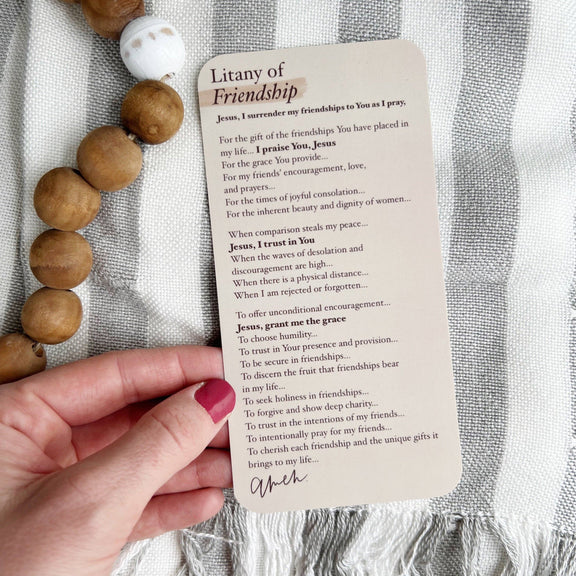 Litany of
Friendship
Jesus, I surrender my friendships to You as I pray,
For the gift of the friendships You have placed in
my life... I praise You, Jesus
For the grace You provide...
For my friends' encouragement, love,
and prayers...
For the times of joyful consolation...
For the inherent beauty and dignity of women...
When comparison steals my peace...
Jesus, I trust in You
When the waves of desolation and
discouragement are high...
When there is a physical distance...
When I am rejected or forgotten...
To offer unconditional encouragement...
Jesus, grant me the grace
To choose humility...
To trust in Your presence and provision...
To be secure in friendships...
To discern the fruit that friendships bear
in my life...
To seek holiness in friendships...
To forgive and show deep charity...
To trust in the intentions of my friends...
To intentionally pray for my friends...
To cherish each friendship and the unique gifts it
brings to my life...
amen